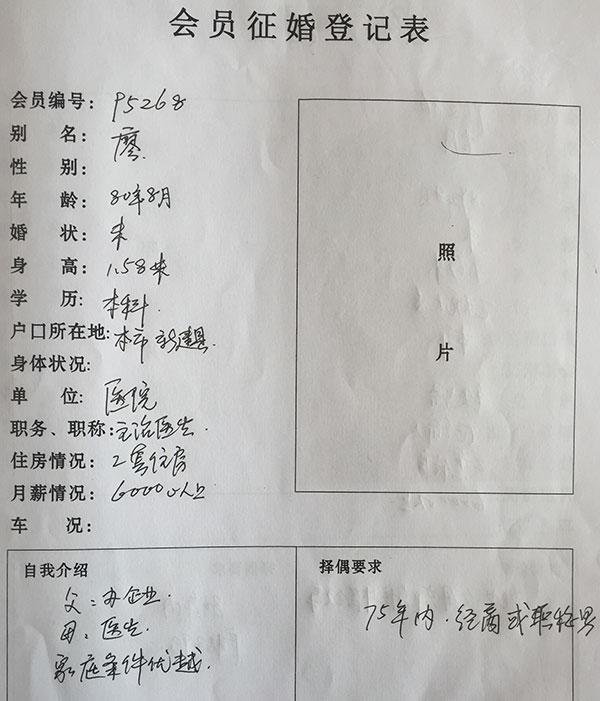 会员征婚登记表
会员编号: P5268
别 名: 廖
性 别:
年 龄: 80年8月
婚 状: 未
身 高: 1.58米
学 历: 本科
户口所在地: 本市 新建县
身体状况:
单 位: 医院
职务、职称: 主治医生
住房情况: 2套住房
月薪情况: 6000以上
车 况:
照
片
自我介绍
父: 办企业
母: 医生
家庭条件优越
择偶要求
75年内. 经商或职称男